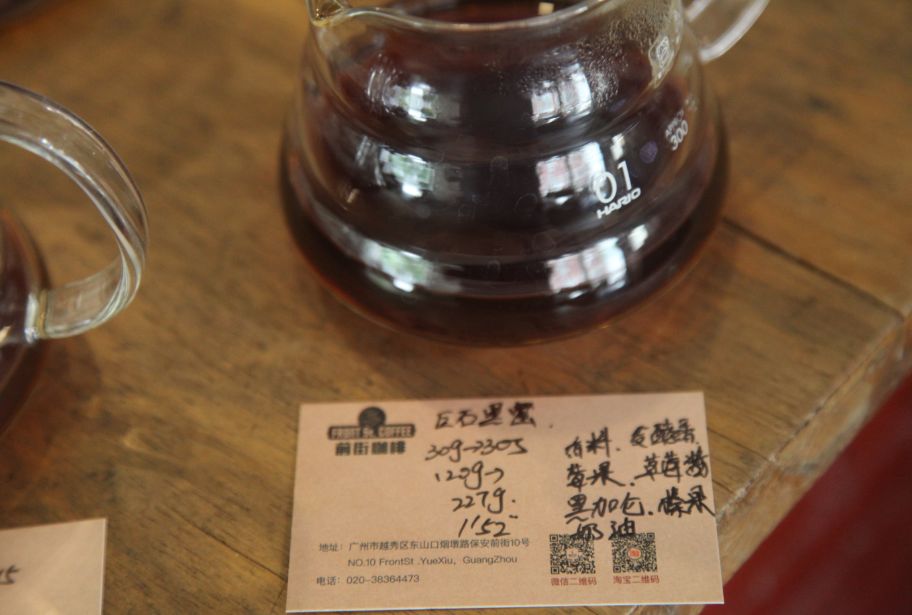 300
01
HARIO
FRONT St. COFFEE
前街咖啡
巨石黑蜜.
30g→30S
120g→
227g.
1'52"
香料. 发酵香.
苹果. 草莓粉
黑加仑. 榛果
奶油
地址：广州市越秀区东山口烟墩路保安前街10号
NO.10 FrontSt .YueXiu，GuangZhou
电话：020-38364473
微信二维码
淘宝二维码